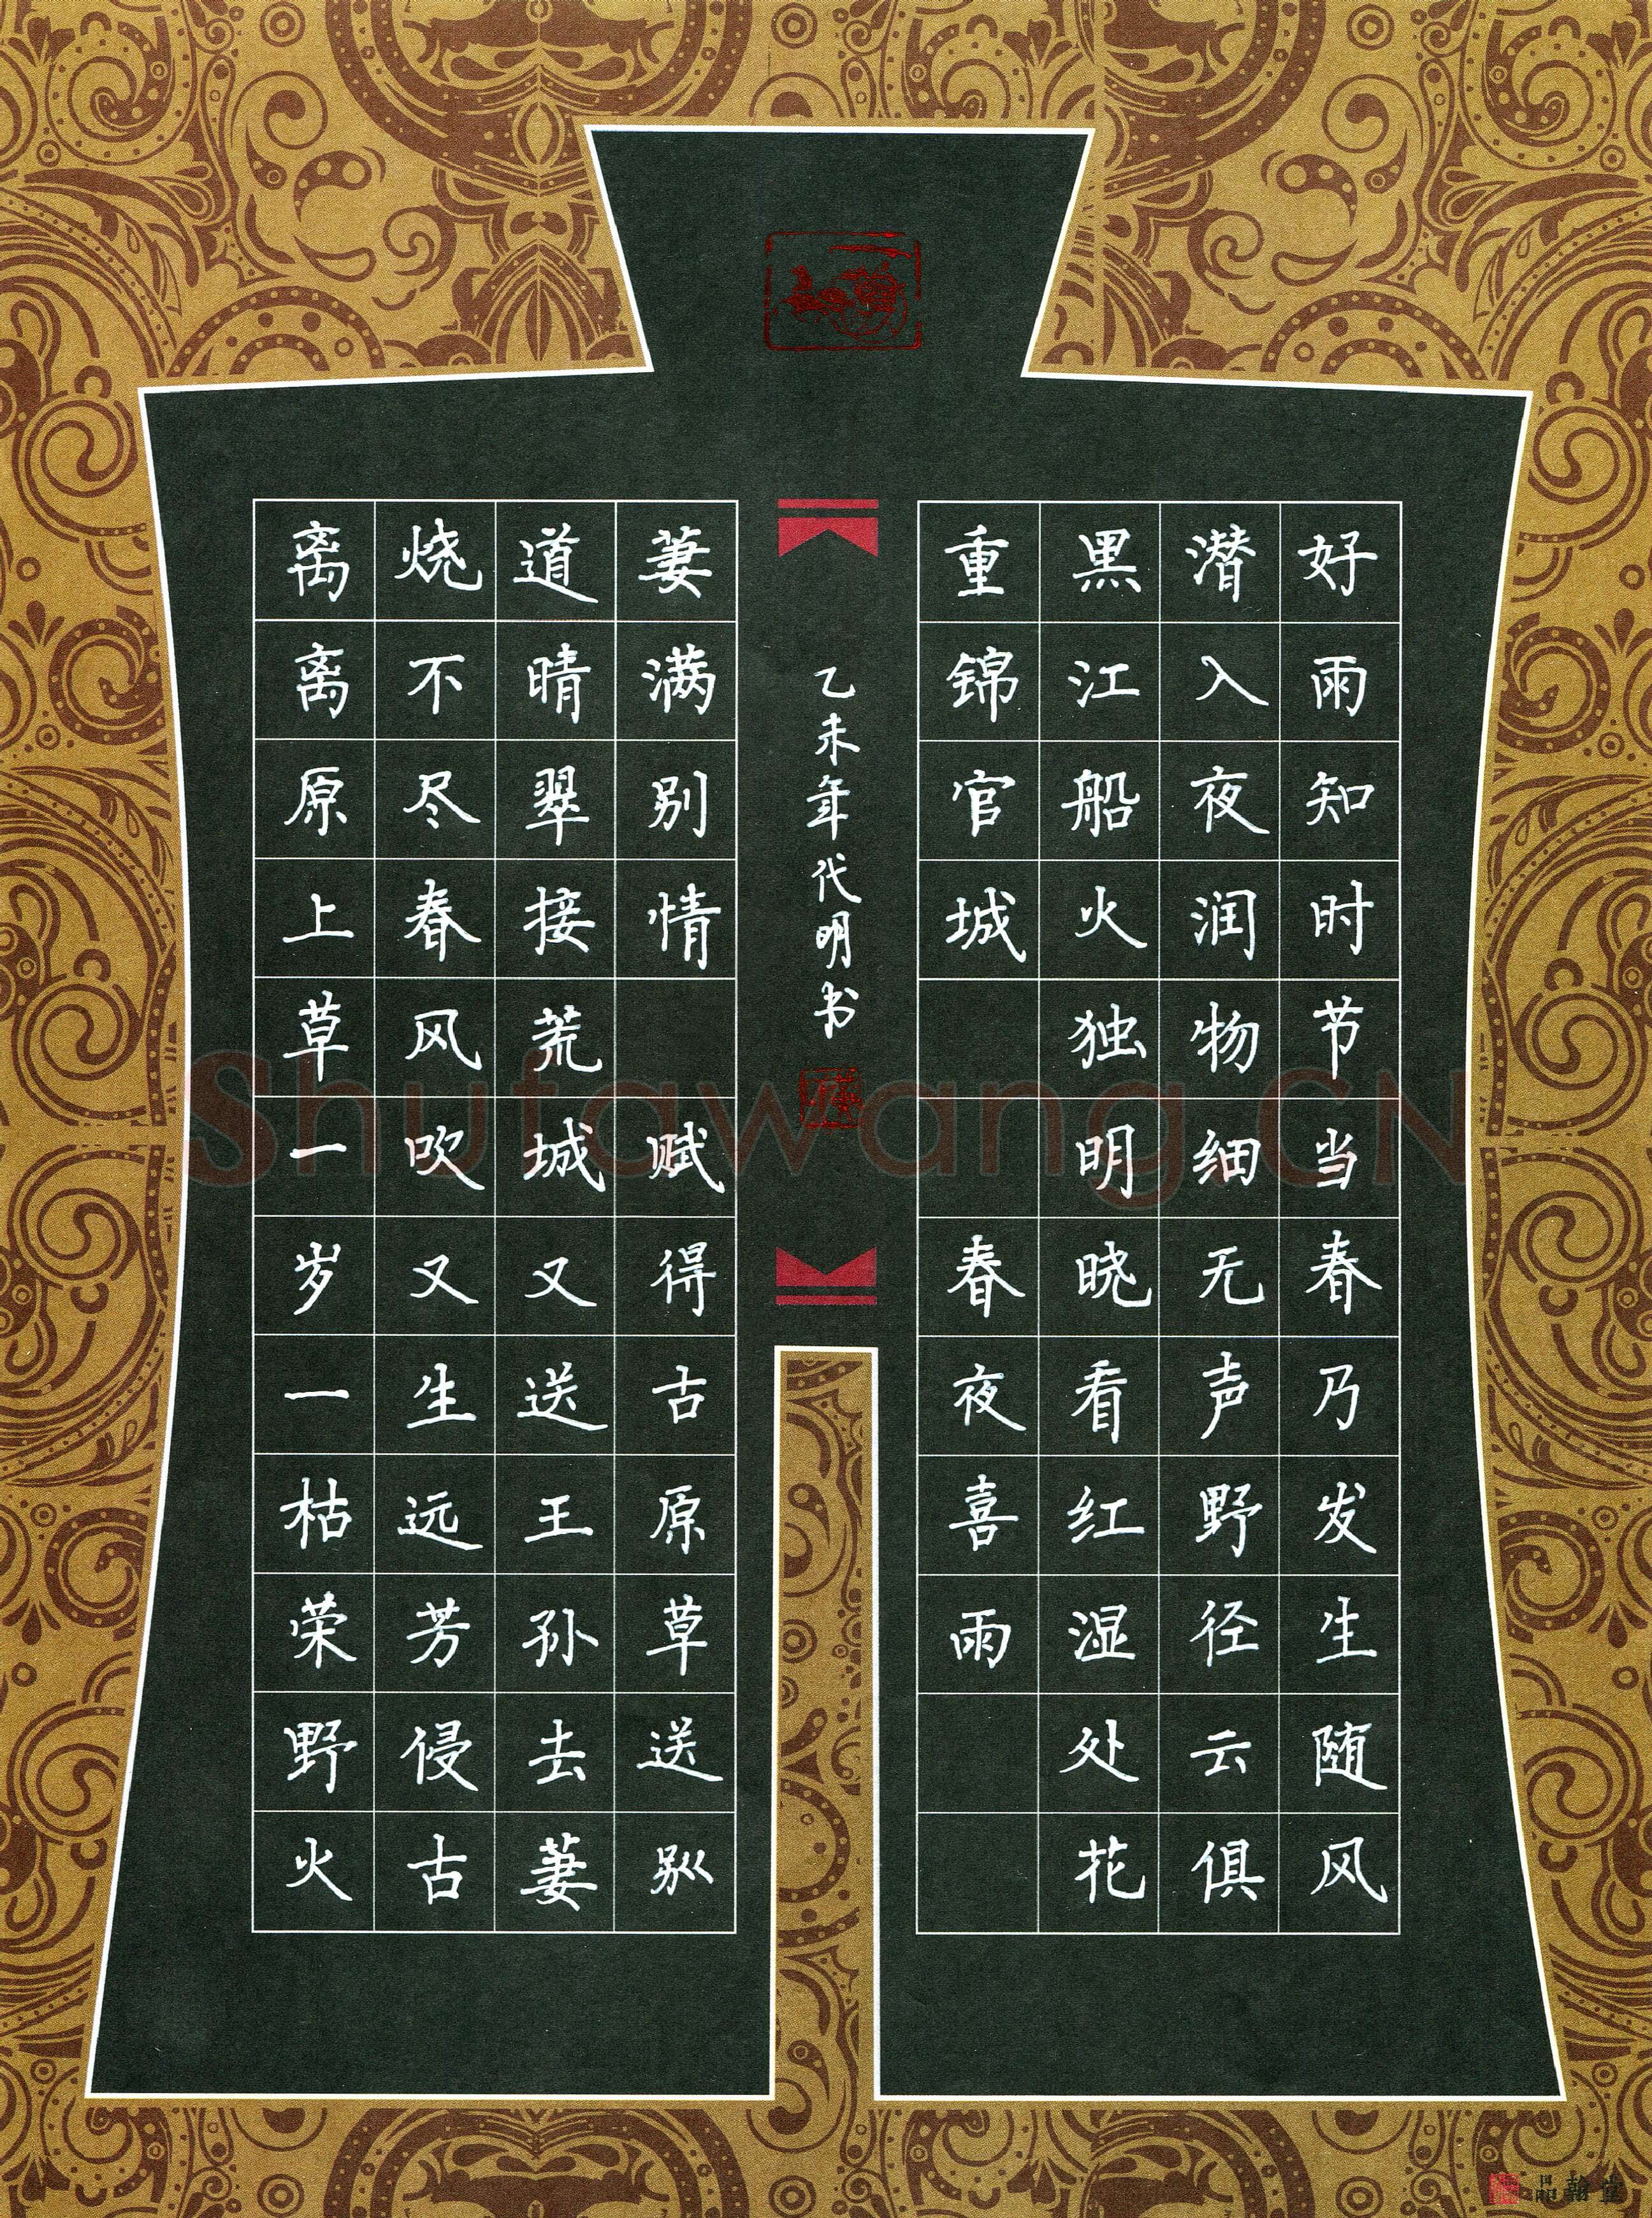 好雨知时节当春乃发生随风
潜入夜润物细无声野径云俱
黑江船火独明晓看红湿处花
重锦官城 春夜喜雨
离离原上草一岁一枯荣野火
烧不尽春风吹又生远芳侵古
道晴翠接荒城又送王孙去萋
萋满别情 赋得古原草送
乙未年代明书
Shufawang.CN
品翰堂